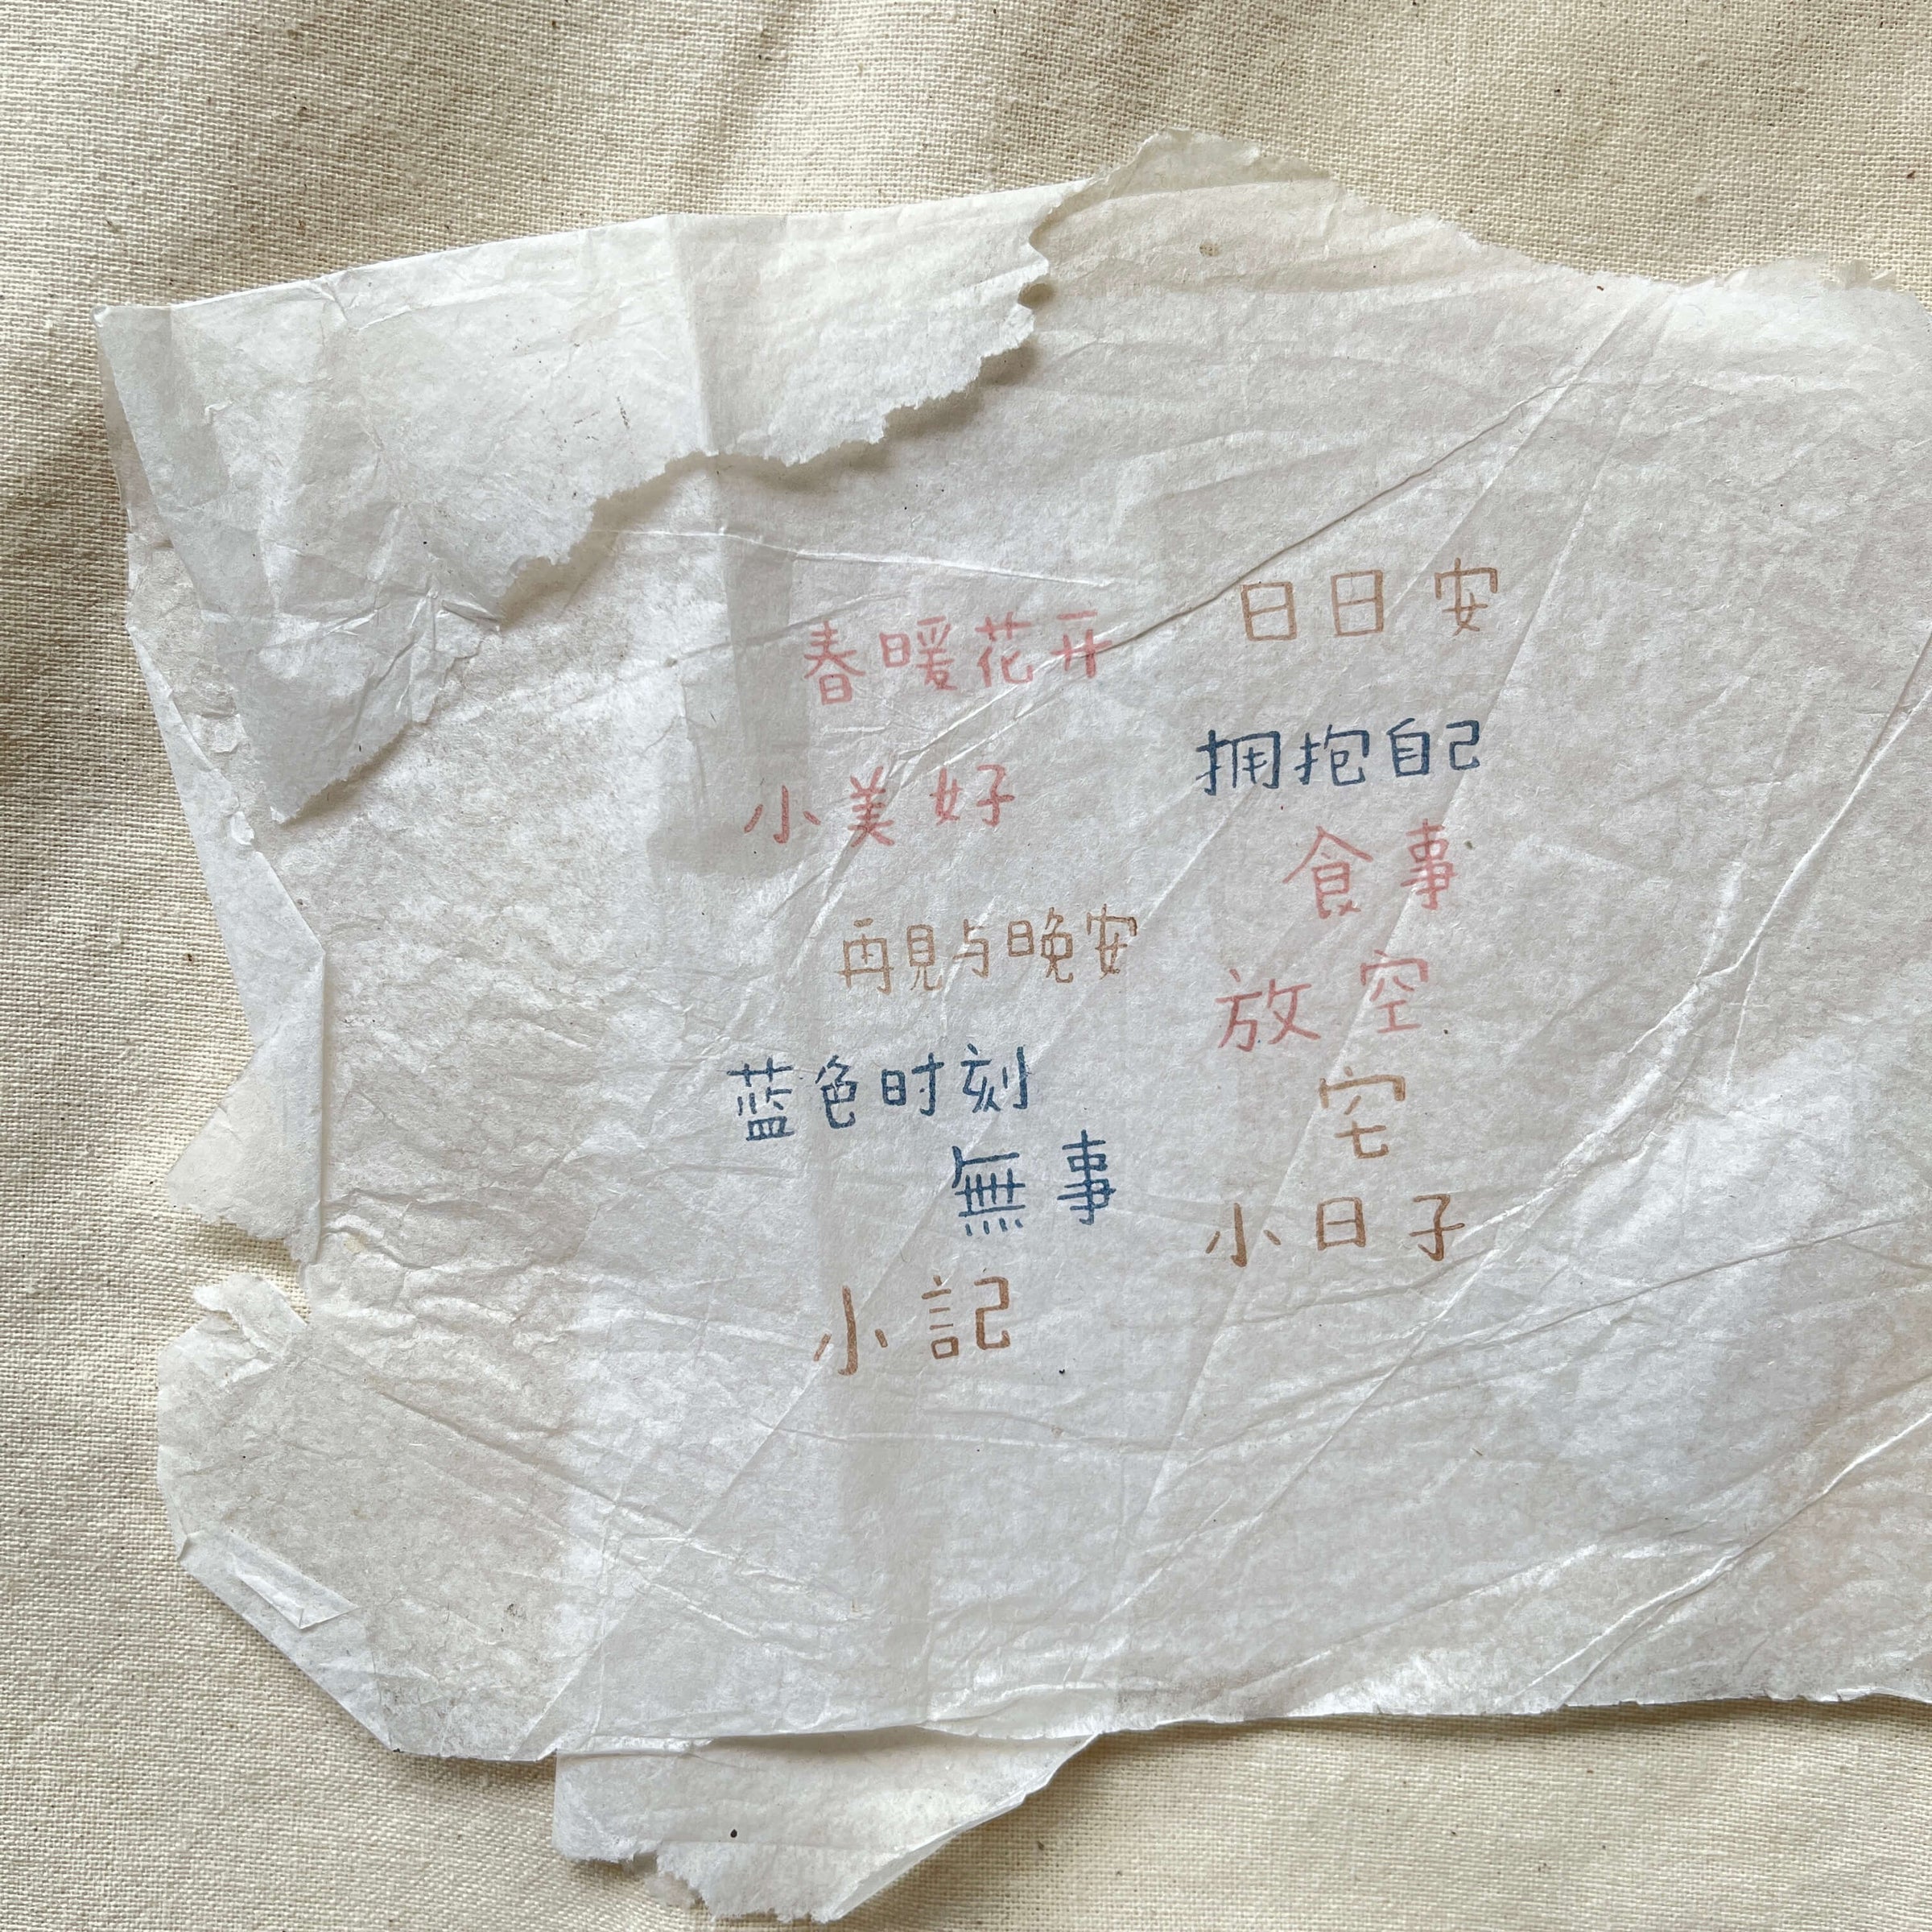 春暖花开
小美好
再見与晚安
蓝色时刻
無事
小記
日日安
拥抱自己
食事
放空
宅
小日子